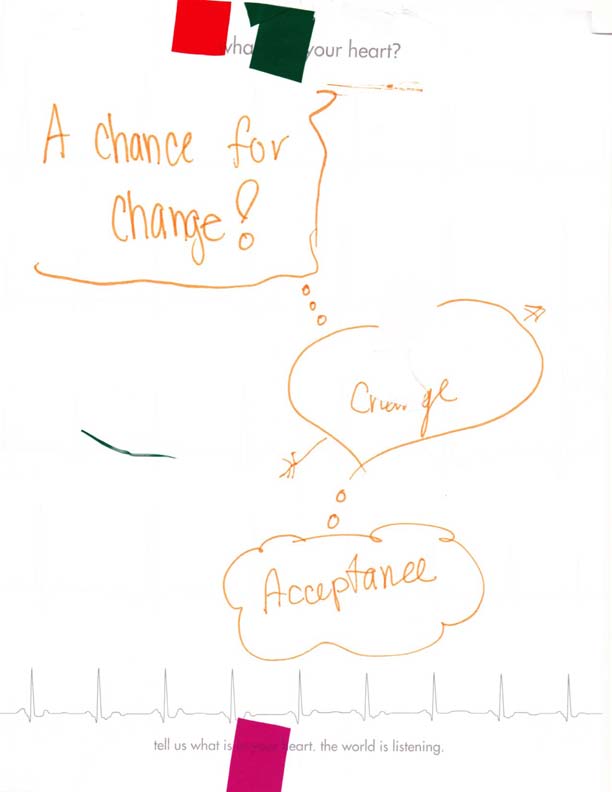 your heart?
A chance for
change!
Change
Acceptance
tell us what is in your heart. the world is listening.